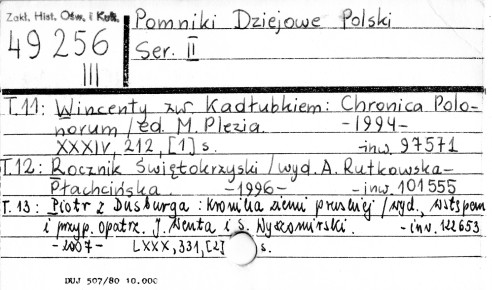 Zakł. Hist. Ośw. i Kult.
49 256
III
Pomniki Dziejowe Polski
Ser. II
T.11: Wincenty zw. Kadłubkiem: Chronica Polo-
norum / ed. M. Plezia. -1994-
XXXIV, 212, [1] s. -inw. 97571
T.12: Rocznik Świętokrzyski / wyd. A. Rutkowska-
Płachcińska. -1996- -inw. 101555
T. 13: Piotr z Dusburga: Kronika ziemi pruskiej / wyd., wstępem
i przyp. opatrz. J. Wenta i S. Wyszomirski. -inw. 122653
-2007- LXXX, 331, [2] s.
DUJ 507/80 10.000